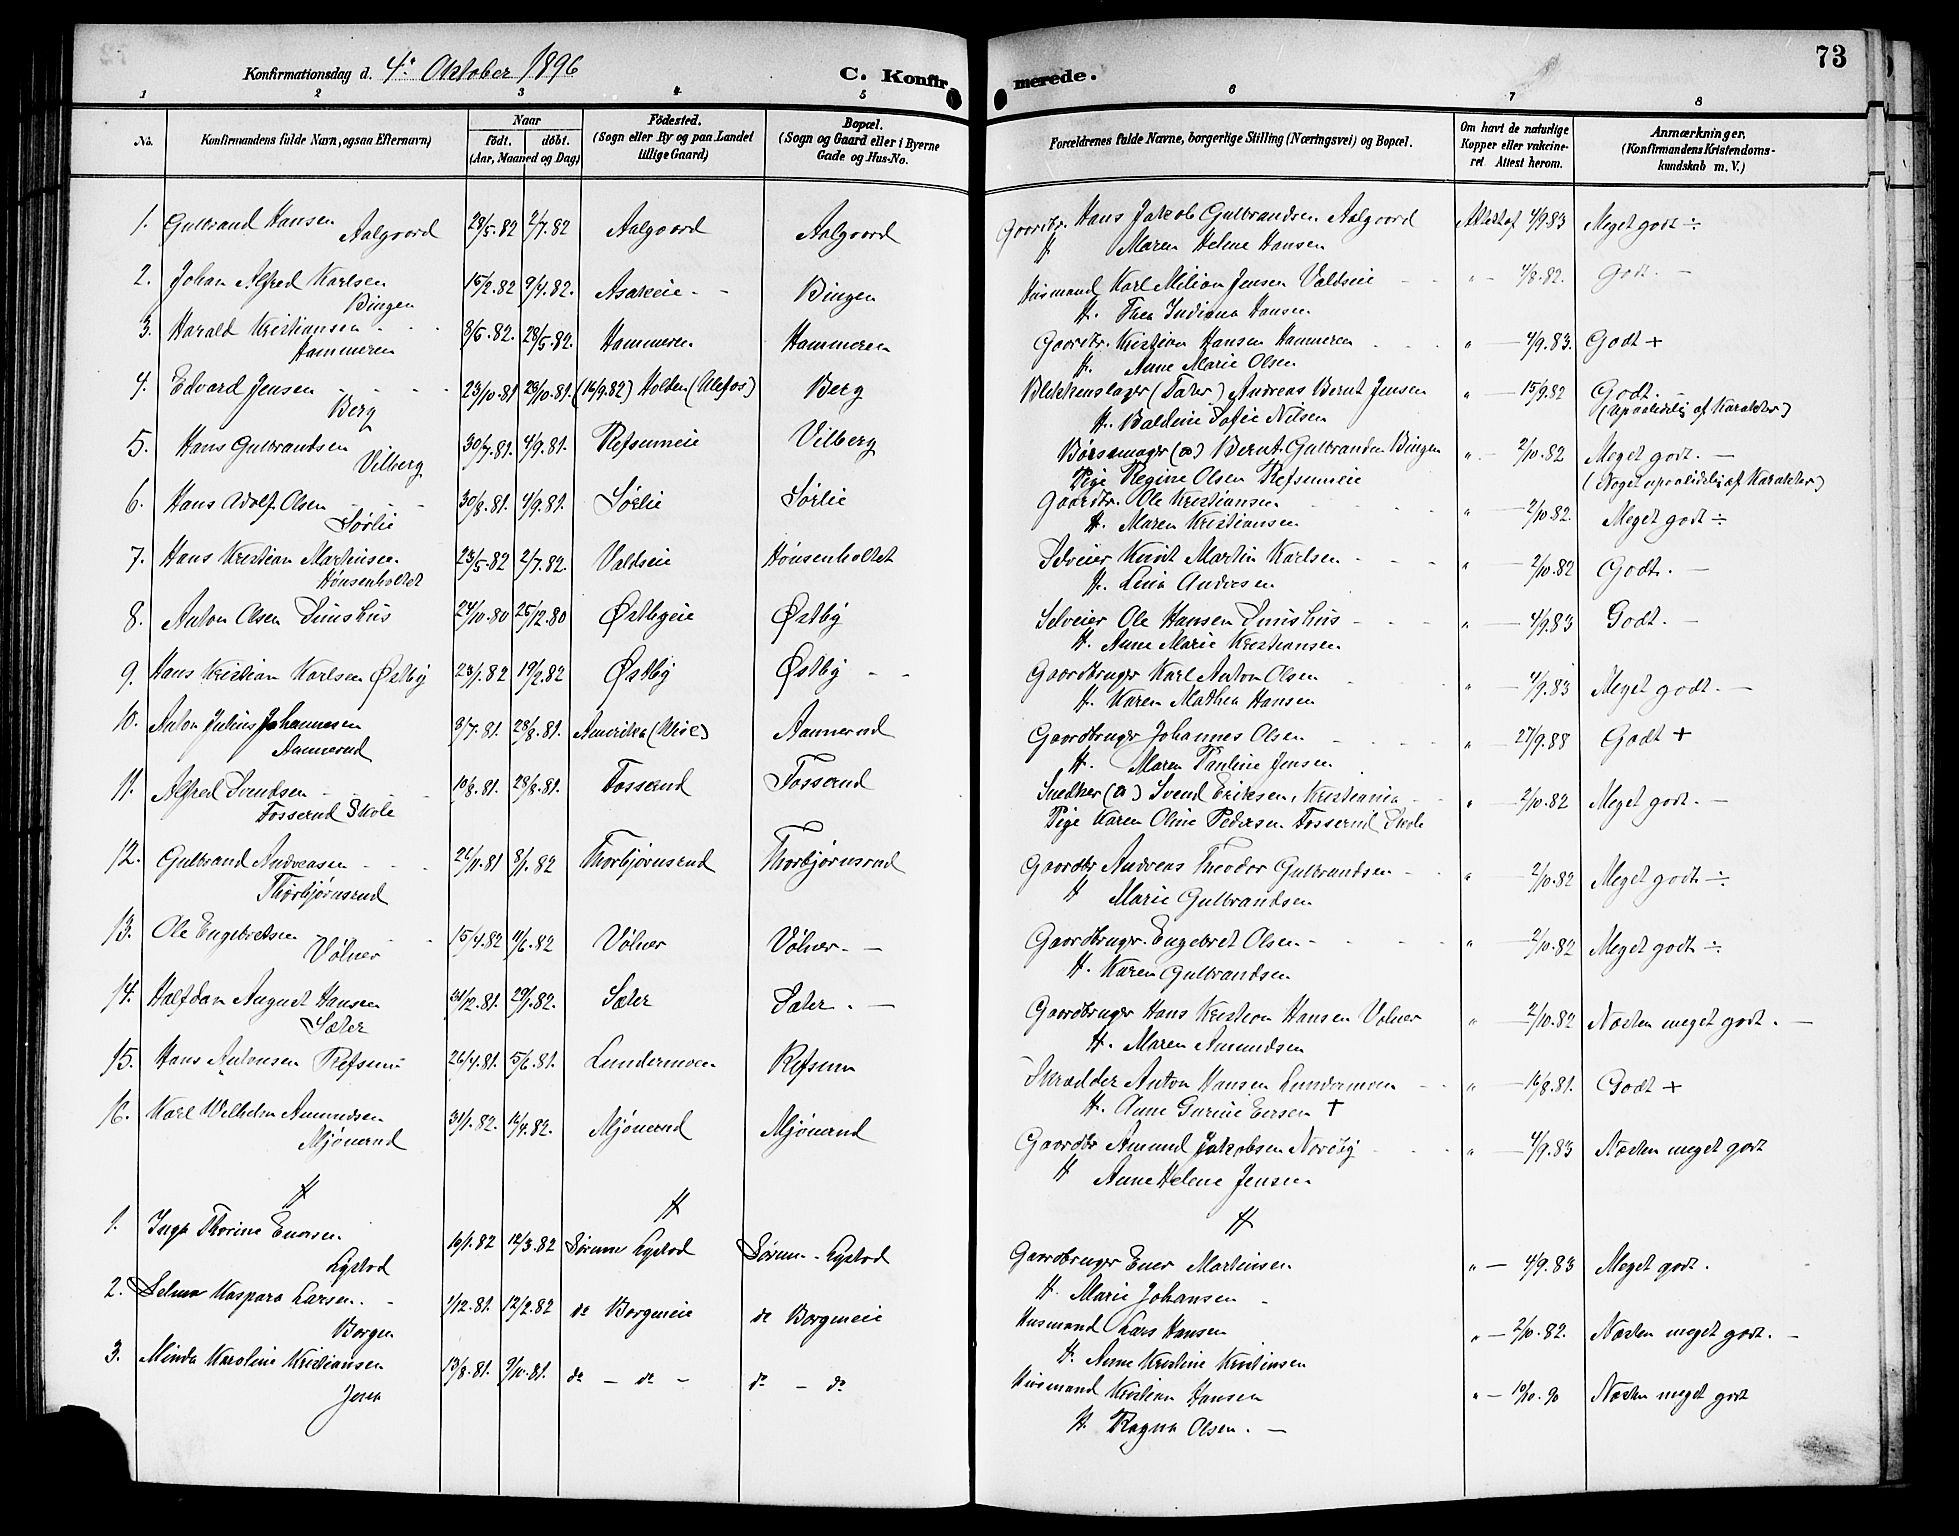 Konfirmationsdag d. 4de Oktober 1896
C. Konfirmerede.
73
1 2 3 4 5 6 7 8
No. Konfirmandens fulde Navn, ogsaa Efternavn) Naar født. døbt. (Aar, Maaned og Dag) Fødested. (Sogn eller By og paa Landet tillige Gaard) Bopæl. (Sogn og Gaard eller i Byerne Gade og Hus-No. Forældrenes fulde Navne, borgerlige Stilling (Næringsvei) og Bopæl. Om havt de naturlige Kopper eller vakcineret Attest herom. Anmærkninger. (Konfirmandens Kristendomskundskab m. V.)
1. Gulbrand Hansen 29/5.82 2/7.82 Aalgaard Aalgaard Gaardbr. Hans Jakob Gulbrandsen Aalgaard Attest af 4/9.83 Meget godt ÷
Aalgaard H. Maren Helene Hansen
2. Johan Alfred Karlsen 15/2.82 9/4.82. Asakeie - - Bingen Husmand Karl Milion Jensen Valdseie " - 4/8.82. Godt. -
Bingen H. Thea Indiana Hansen
3. Harald Kristiansen 8/5.82. 28/5.82. Hammeren Hammeren Gaardbr. Kristian Hansen Hammeren " - 4/9.83. Godt +
Hammeren H. Anne Marie Olsen
4. Edvard Jensen 23/10.81 28/10.81. (16/9.82) Holden (Ulefos) Berg Blikkenslager (Tater) Andreas Bernt Jensen " - 15/9.82 Godt. -
Berg H. Baldine Sofie Nilsen (upaalidelig af Karakter)
5. Hans Gulbrandsen 30/7.81. 4/9.81. Refsumeie Vilberg Børsemager (a) Bernt Gulbrandsen Bingen " - 2/10.82 Meget godt. -
Vilberg Pige Regine Olsen Refsumeie (Noget upaalidelig af Karakter)
6. Hans Adolf Olsen 30/8.81. 4/9.81. Sørlie Sørlie Gaardbr. Ole Kristiansen " - 2/10.82. Meget godt ÷
Sørlie H. Maren Kristiansen
7. Hans Kristian Martinsen 23/5.82 2/7.82. Valdseie Hønsenholtet Selveier Knut Martin Karlsen " - 2/10.82 Godt. -
Hønsenholtet H. Lina Andresen
8. Anton Olsen Smishus 24/10.80 25/12.80 Østbyeie Østby Selveier Ole Hansen Smishus " - 4/9.83 Godt. -
H. Anne Marie Kristiansen
9. Hans Kristian Karlsen Østby 23/1.82 19/2.82 Østby Østby - - Gaardbruger Karl Anton Olsen " - 4/9.83 Meget godt. -
H. Karen Mathea Hansen
10. Anton Julius Johannesen 3/7.81. 28/8.81. Amerika (Wisc) Aamerud Gaardbruger Johannes Olsen " - 27/9.88 Godt +
Aamerud H. Maren Pauline Jensen
11. Alfred Svendsen 10/8.81. 28/8.81. Fosserud Fosserud Snedker (a) Svend Eriksen, Kristiania " - 2/10.82 Meget godt. -
Fosserud Skole Pige Karen Oline Pedersen Fosserud Skole
12. Gulbrand Andreasen 26/11.81 8/1.82 Thorbjørnsrud Thorbjørnsrud Gaardbr Andreas Theodor Gulbrandsen " - 2/10.82 Meget godt ÷
Thorbjørnsrud H Marie Gulbrandsen
13. Ole Engebretsen 15/4.82 11/6.82 Vølner Vølner. - Gaardbruger. Engebret Olsen " - 2/10.82 Meget godt ÷
Vølner H. Karen Gulbrandsen
14. Halfdan August Hansen 31/12.81. 29/1.82. Sæter Sæter. - Gaardbruger Hans Kristian Hansen Volner " - 2/10.82 Næsten meget godt. -
Sæter H. Maren Amundsen
15. Hans Antonsen Refsum 26/4.81. 5/6.81. Lundermoen Refsum Skrædder Anton Hansen Lundermoen " - 16/8.81. Godt +
H. Anne Gurine Eversen +
16. Karl Wilhelm Amundsen 31/1.82. 16/4.82. Mjønerud Mjønerud Gaardbr Amund Jakobsen Nordby " - 4/9.83 Næsten meget godt
Mjønerud H Anne Helene Jensen
1. Inga Thorine Enersen 16/1.82 12/3.82 Sørum Lystad Sørum - Lystad Gaardbruger Ener Martinsen " - 4/9.83 Meget godt.
Lystad H. Marie Johansen
2. Selma Kaspara Larsen. 1/12.81. 12/2.82 do Borgeneie do Borgeneie Husmand Lars Hansen " - 2/10.82. Næsten meget godt. -
Borgen H. Anne Kristine Kristiansen
3. Minda Karoline Kristiansen 13/8.81. 9/10.81. do - do - do - do Husmand Kristian Hansen " - 10/10.90 Næsten meget godt
H. Ragna Olsen. -